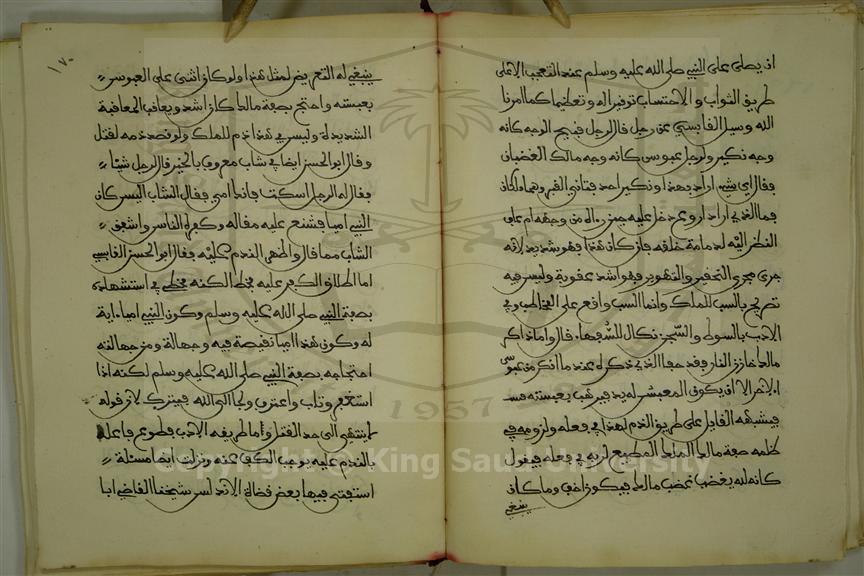 ان يصلى على النبي صلى الله عليه وسلم عند التعجب الا على
طريق الثواب والاحتساب توقيرا له وتعظيما كما امرنا
الله وسيل القابسي عن رجل قال لرجل قبيح الوجه كانه
وجه نكير ولرجل عبوس كانه وجه مالك الغضبان
فقال اي شيء اراد بهذا ونكير احد فتاني القبر وهما ملكان
فما الذي اراد اروع دخل عليه حين رءاه من وجهه ام عاف
النظر اليه لدمامة خلقه فان كان هذا فهو شديد لانه
جرى مجرى التحقير والتهوين فهو اشد عقوبة وليس فيه
تصريح بالسب للملك وانما السب واقع على المخاطب وفي
الادب بالسوط والسجن نكال للسفهاء قال واما ذاكر
مالك خازن النار فقد جفا الذي ذكره عند ما انكر من عبوس
الاخر الا ان يكون المعبس له يد فيرهب بعبسته
فيشبهه القايل على طريق الذم لهذا في فعله ولزومه في
ظلمه صفة مالك الملك المطيع لربه في فعله فيقول
كانه لله يغضب غضب مالك فيكون اخف وما كان
ينبغي
١٧٠
ينبغي له التعريض لمثل هذا ولو كان اثنى على العبوس
بعبسته واحتج بصفة مالك كان اشد ويعاقب المعاقبة
الشديدة وليس في هذا ذم للملك ولو قصد ذمه لقتل
وقال ابو الحسن ايضا في شاب معروف بالخير قال لرجل شيئا
فقال له الرجل اسكت فانك امي فقال الشاب اليس كان
النبي اميا فشنع عليه مقاله وكفره الناس واشفق
الشاب مما قال واظهر الندم عليه فقال ابو الحسن القابسي
اما اطلاق الكفر عليه فخطا لكنه مخطي في استشهاده
بصفة النبي صلى الله عليه وسلم وكون النبي اميا ءاية
له وكون هذا اميا نقيصة فيه وجهالة ومن جهالته
احتجاجه بصفة النبي صلى الله عليه وسلم لكنه اذا
استغفر وتاب واعترف ولجا الى الله فيترك لان قوله
لا ينتهي الى حد القتل وما طريقه الادب فطوع فاعله
بالندم عليه يوجب الكف عنه ونزلت ايضا مسئلة
استفتى فيها بعض قضاة الاندلس شيخنا القاضي ابا
1957
Copyright © King Saud University